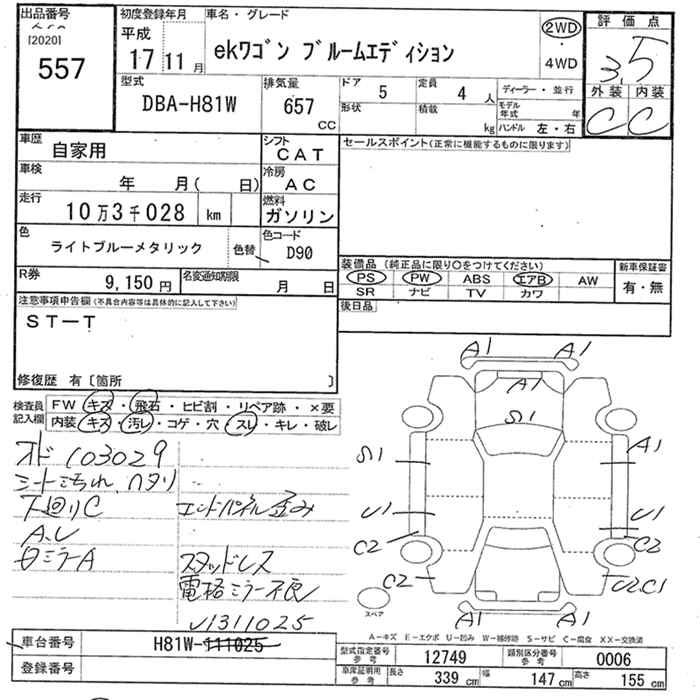 出品番号
[2020]
557
初度登録年月
平成
17 11月
車名・グレード
ekワゴン ブルームエディション
2WD
・
4WD
評価点
3.5
外装 内装
C C
型式
DBA-H81W
排気量
657
CC
ドア 5
形状
定員 4 人
積載 kg
ディーラー・並行
モデル年式 年
ハンドル 左・右
車歴
自家用
シフト
CAT
セールスポイント(正常に機能するものに限ります)
車検
年 月( 日)
冷房
AC
走行
10万3千028 km
燃料
ガソリン
色
ライトブルーメタリック
色替
色コード
D90
装備品(純正品に限り○をつけてください)
PS PW ABS エアB AW
SR ナビ TV カワ
新車保証書
有・無
R券
9,150円
名変通知期限
月 日
後日品
注意事項申告欄(不具合内容等は具体的に記入して下さい)
ST-T
修復歴 有〔箇所 〕
検査員
記入欄
FW キズ・飛石・ヒビ割・リペア跡・×要
内装・キズ・汚レ・コゲ・穴・スレ・キレ・破レ
オド 103029
シート汚れ、ヘタリ
下回りC
エンドパネル歪み
A.U
白ミラーA
スタッドレス
電格ミラー不良
U1311025
A1 A1
A1
S1
S1 A1
U1 U1
C2 C2
C2 U2.C1
スペア
A1 A1
A-キズ E-エクボ U-凹み W-補修跡 S-サビ C-腐食 XX-交換済
車台番号
H81W-111025
登録番号
型式指定番号
参考
12749
類別区分番号
参考
0006
車庫証明用
参考
長さ 339 cm
幅 147 cm
高さ 155 cm